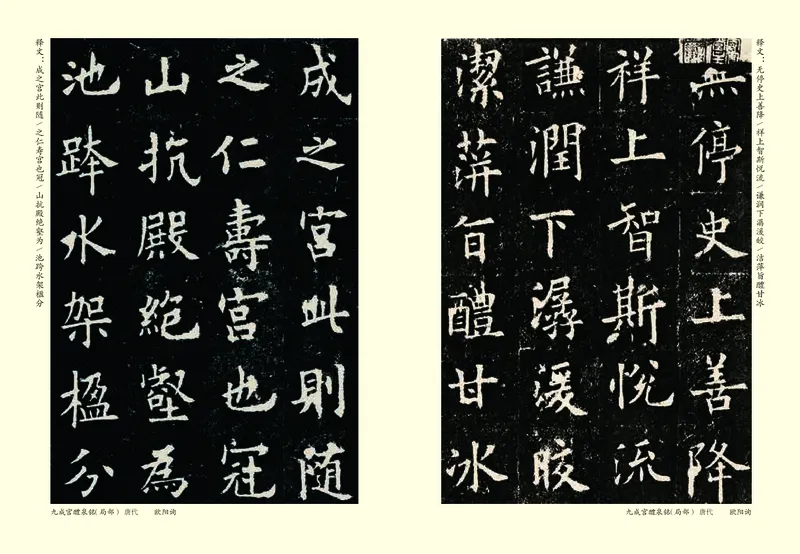 释文：成之宫此则随/之仁寿宫也冠/山抗殿绝壑为/池跨水架楹分
成之宮此則随
之仁壽宮也冠
山抗殿絶壑為
池跨水架楹分
九成宫醴泉铭(局部) 唐代 欧阳询
释文：无停史上善降/祥上智斯悦流/谦润下潺湲皎/洁萍旨醴甘冰
無停史上善降
祥上智斯悦流
謙潤下潺湲皎
潔蓱旨醴甘冰
九成宫醴泉铭(局部) 唐代 欧阳询